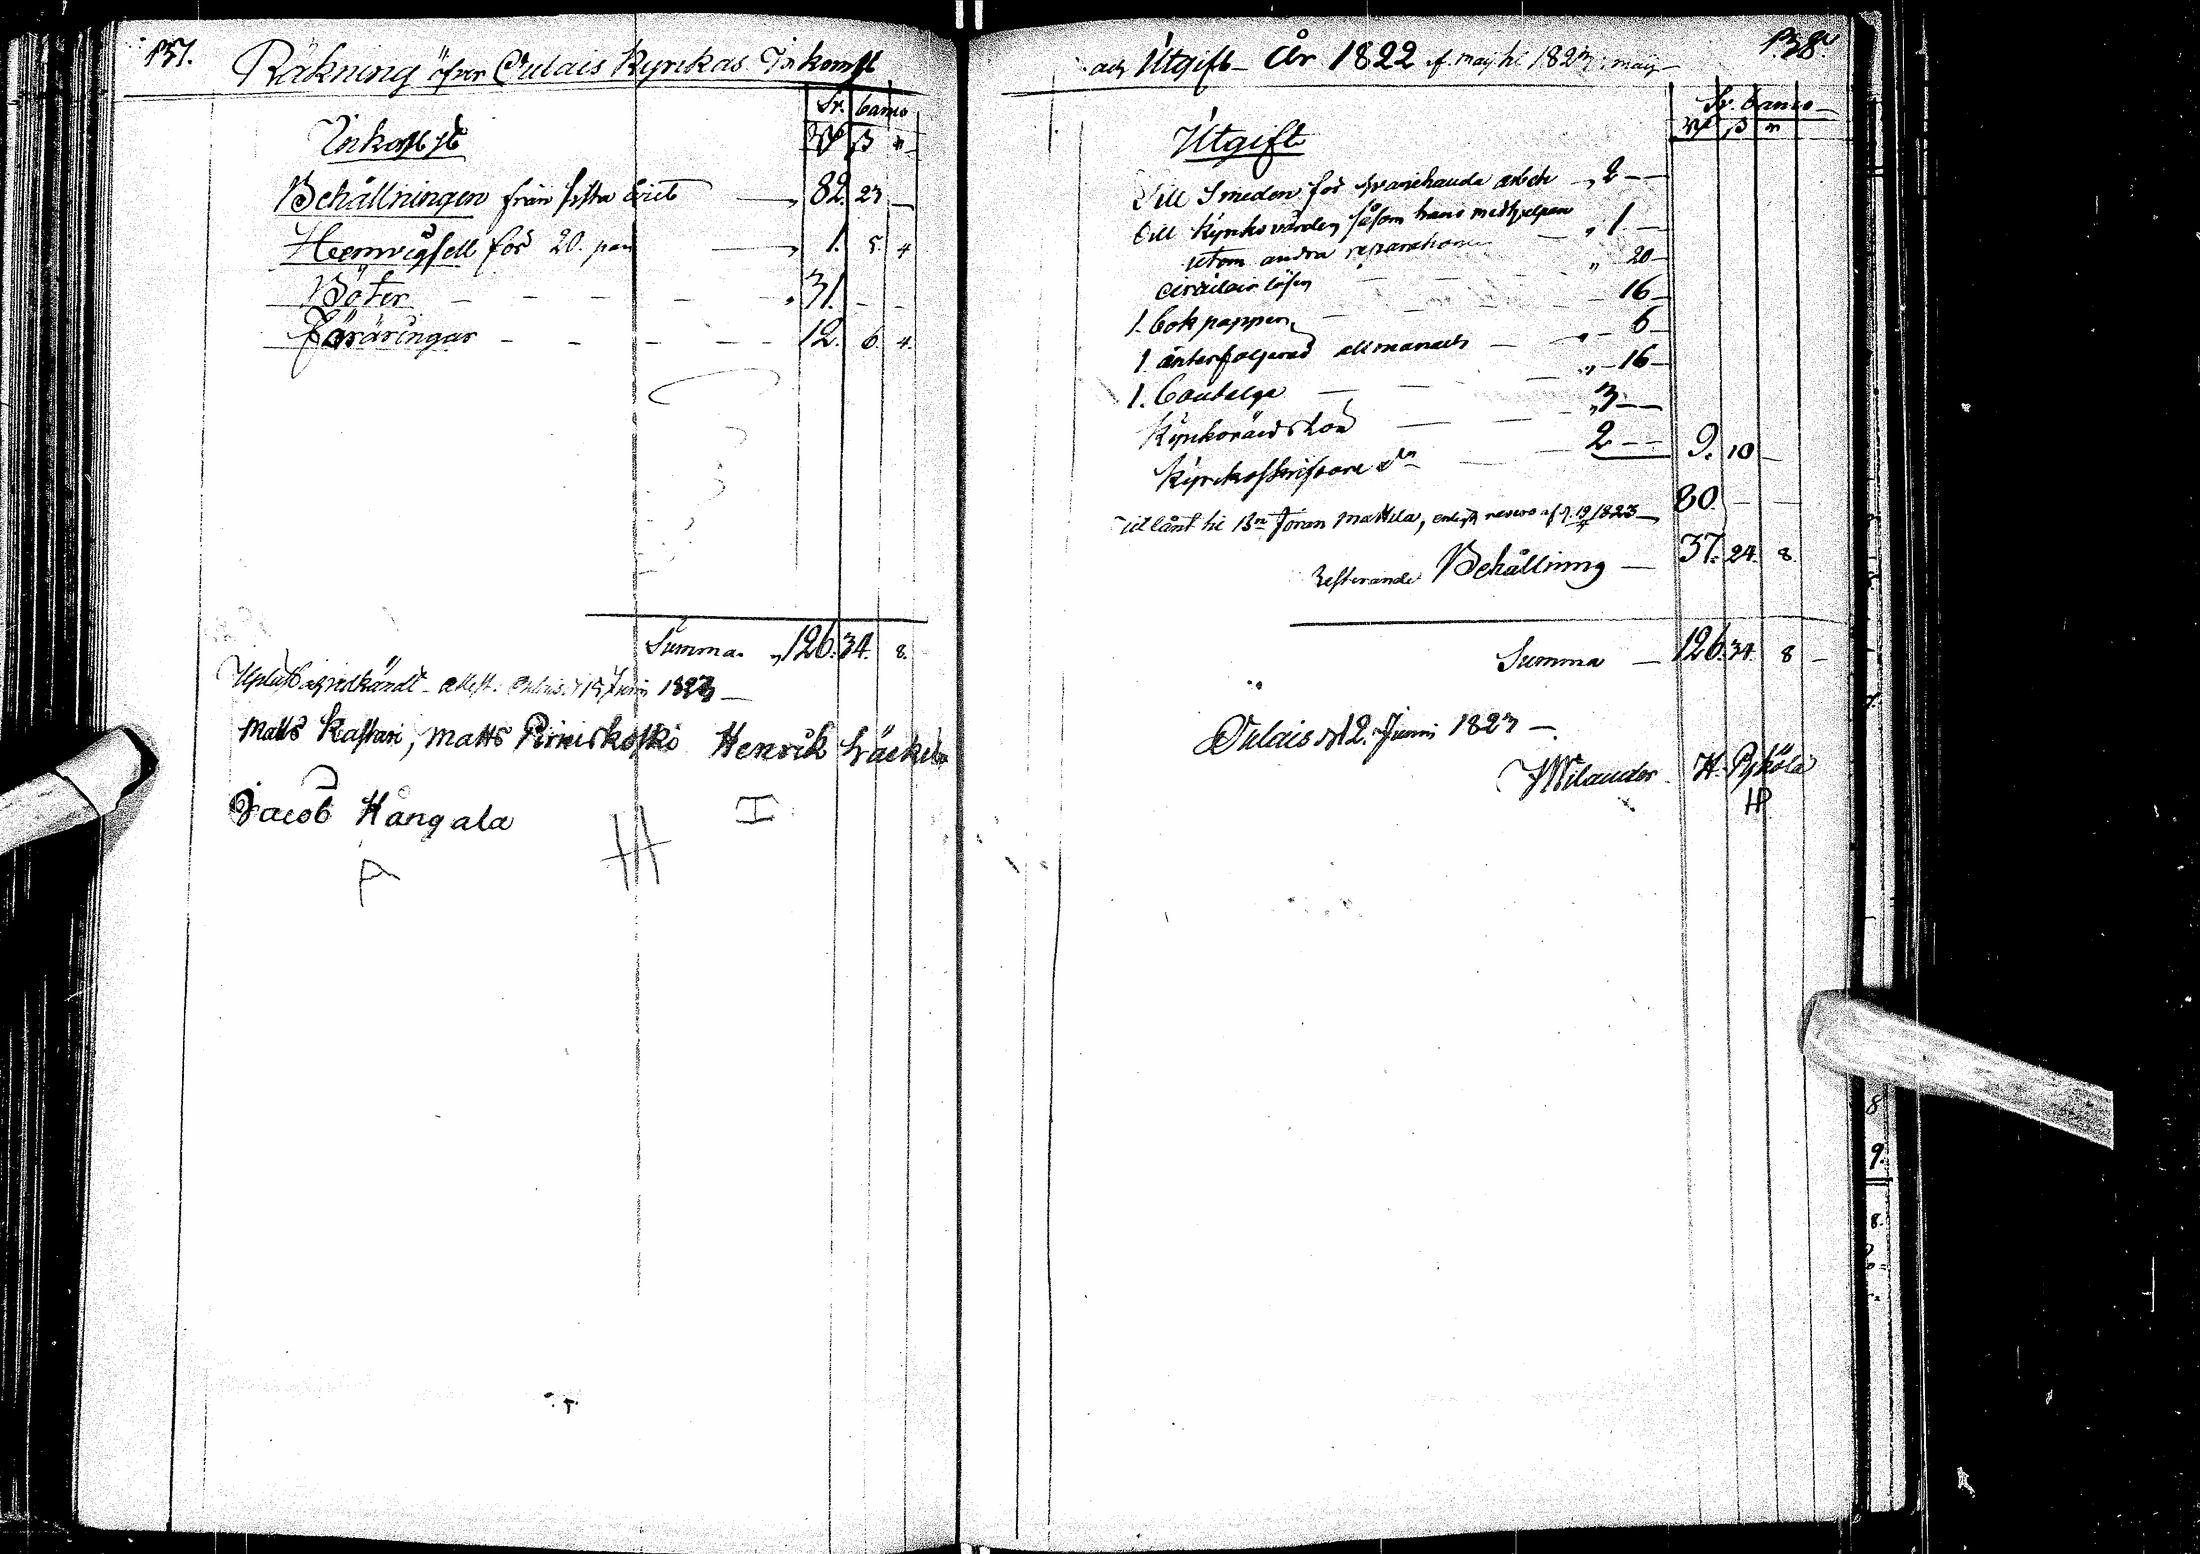 137.
Räkning öfver Oulais Kyrckas Inkomst
Sv. banco
Inkomst
Rd ß r
Behållningen från sista Året — 82. 23 —
Hemvigsell för 20. par — 1. 5. 4
Böter — — — — — 31. — —
Föräringar — — — — — 12. 6. 4.
Summa. 126. 34. 8.
Upläst och vidkändt attest. Oulais d 15 Junii 1823 —
Matts Kastari, Matts Pirneskoski Henrik Häckila
Jacob Hångala
H I
P
138.
och Utgift År 1822 f. maij til 1823 maij
Sv. banco
Rd ß r
Utgift
Till Smeden för hvarjehanda arbete „ 2 — —
till Kyrkovärden såsom hans medhjelpare „ 1. —
utom andra reparationer „ 20 —
Circulair lösen — 16 —
1. bok papper — 6 —
1. interfolierad allmanach — „ — 16 —
1. — „ 3 — —
Kyrkoråds lön
Kyrkoskrifvare dn 2 — — 9. 10 —
Utlånt til Bn Joran Mattila, enligt revers af d. 19/ 1823 — 80. — —
Resterande Behållning — 37. 24. 8.
Summa — 126. 34. 8 —
Oulais d 12. Junii 1823 —.
J Wilander. H. Pyhälä
HP